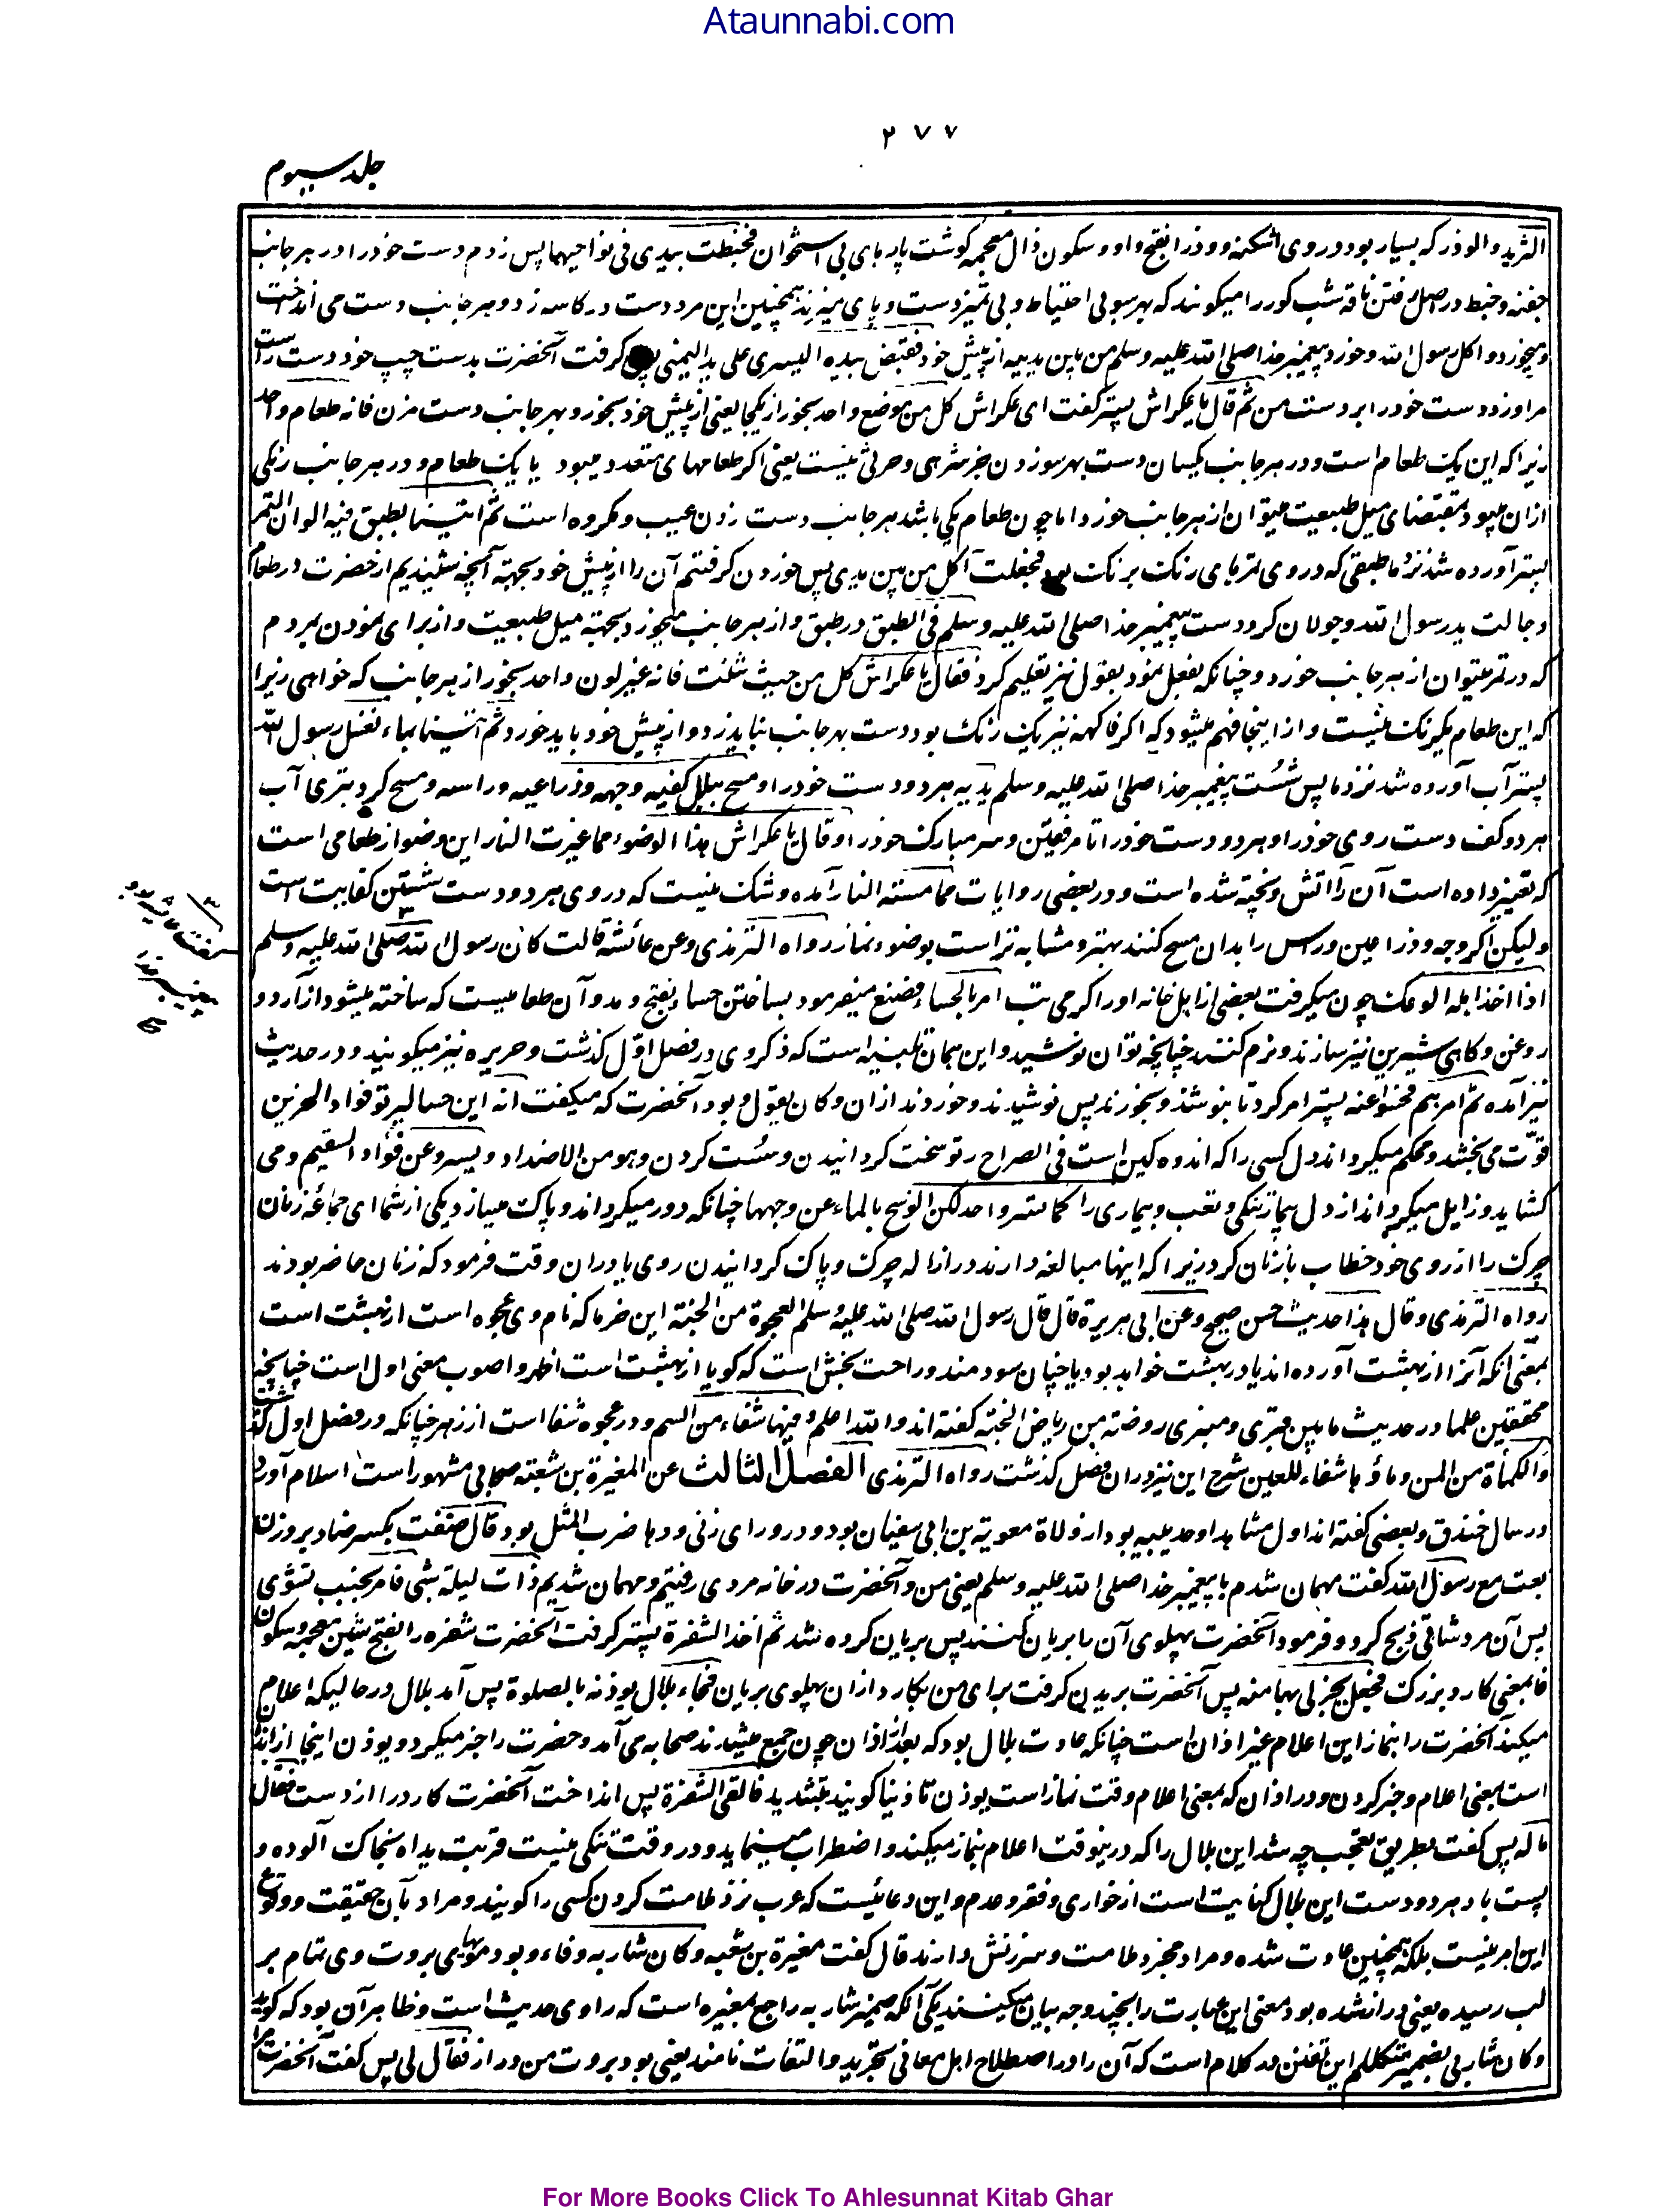 Ataunnabi.com
۲۷۷
جلد سیوم
الثرید والوذر که بسیار بود در وی اشکنه ووذر بفتح واو وسکون ذال معجمه گوشت پاره بای بی استخوان فخبطت بیدی فی نواحیها پس زدم دست خود را در هر جانب
جفنه وخبط در اصل رفتن ناقه شب کور را میگویند که بهر سو بی احتیاط و بی تمیز دست و پای میزند همچنین این مرد دست در کاسه زد و هر جانب دست می انداخت
ومیخورد واکل رسول الله وخورد پیغمبر خدا صلی الله علیه وسلم من بین یدیه از پیش خود فقبض بیده الیسری علی یدی الیمنی پس گرفت آنحضرت بدست چپ خود دست راست
مرا وزد دست خود را بر دست من ثم قال یا عکراش پستر گفت ای عکراش کل من موضع واحد بخور از یکجا یعنی از پیش خود بخور و بهر جانب دست مزن فانه طعام واحد
زیرا که این یک طعام است و در هر جانب یکسان دست بهر سو زدن جز شرهی و حرصی نیست یعنی اگر طعامهای متعدد میبود یا یک طعام و در هر جانب رنگی
ازان میبود بمقتضای میل طبیعت میتوان از هر جانب خورد اما چون طعام یکی باشد هر جانب دست زدن عیب و مکروه است ثم اتینا بطبق فیه الوان التمر
پستر آورده شد نزد ما طبقی که در وی تمرهای رنگ برنگ بود فجعلت آکل من بین یدی پس خوردن گرفتم آن را از پیش خود بجهته آنچه شنیدیم از حضرت در طعام
وجالت ید رسول الله وجولان کرد دست پیغمبر خدا صلی الله علیه وسلم فی الطبق در طبق و از هر جانب میخورد بجهته میل طبیعت و از برای نمودن بمردم
که در تمر میتوان از هر جانب خورد و چنانکه بفعل نمود بقول نیز تعلیم کرد فقال یا عکراش کل من حیث شئت فانه غیر لون واحد بخور از هر جانب که خواهی زیرا
که این طعام یکرنگ نیست و از اینجا فهم میشود که اگر فاکهه نیز یک رنگ بود دست بهر جانب نباید زد و از پیش خود باید خورد ثم اتینا بماء فغسل رسول الله
پستر آب آورده شد نزد ما پس شست پیغمبر خدا صلی الله علیه وسلم یدیه هر دو دست خود را ومسح ببلل کفیه وجهه وذراعیه وراسه ومسح کرد بتری آب
هر دو کف دست روی خود را و هر دو دست خود را تا مرفقین و سر مبارک خود را وقال یا عکراش هذا الوضوء مما غیرت النار این وضو از طعامی است
که تغییر داده است آن را آتش و پخته شده است و در بعضی روایات مما مسته النار آمده و شک نیست که در وی هر دو دست شستن کفایت است
ولیکن اگر وجه و ذراعین و راس را بدان مسح کنند بهتر و مشابه تر است بوضوء نماز رواه الترمذی وعن عائشة قالت کان رسول الله صلی الله علیه وسلم
گفت عایشه بود
پیغمبر خدا
اذا اخذ اهله الوعک چون میگرفت بعضی از اهل خانه او را گرمی تب امر بالحساء فصنع میفرمود بساختن حساء بفتح و مد و آن طعامیست که ساخته میشود از آرد و
روغن و گاهی شیرین نیز سازند و نرم کنند چنانچه توان نوشید و این همان تلبینه است که ذکر وی در فصل اول گذشت و حریره نیز میگویند و در حدیث
نیز آمده ثم امرهم فحسوا عنه پستر امر کرد تا بنوشند و بخورند پس نوشیدند و خوردند ازان وکان یقول و بود آنحضرت که میگفت انه این حسا لیرتو فؤاد الحزین
قوت می بخشد و محکم میگرداند دل کسی را که اندوه گین است فی الصراح رتو سخت گردانیدن و سست کردن وهو من الاضداد ویسرو عن فؤاد السقیم ومی
کشاید و زایل میگرداند از دل بیمار تنگی و تعب و بیماری را کما تسرو احدلکن الوسخ بالماء عن وجهها چنانکه دور میگرداند و پاک میسازد یکی از شما ای جماعه زنان
چرک را از روی خود خطاب با زنان کرد زیرا که اینها مبالغه دارند در ازاله چرک و پاک گردانیدن روی یا دران وقت فرمود که زنان حاضر بودند
رواه الترمذی وقال هذا حدیث حسن صحیح وعن ابی هریرة قال قال رسول الله صلی الله علیه وسلم العجوة من الجنة این خرما که نام وی عجوه است از بهشت است
بمعنی آنکه آنرا از بهشت آورده اند یا در بهشت خواهد بود یا چنان سودمند و راحت بخش است که گویا از بهشت است اظهر و اصوب معنی اول است چنانچه
محققین علما در حدیث ما بین قبری ومنبری روضة من ریاض الجنة گفته اند والله اعلم وفیها شفاء من السم و در عجوه شفا است از زهر چنانکه در فصل اول گذشت
والکماة من المن وماؤها شفاء للعین شرح این نیز دران فصل گذشت رواه الترمذی الفصل الثالث عن المغیرة بن شعبة صحابی مشهور است اسلام آورد
در سال خندق و بعضی گفته اند اول مشاهد او حدیبیه بود از ولاة معویة بن ابی سفیان بود و در رای زنی و دها ضرب المثل بود قال ضفت بکسر ضاد بر وزن
بعت مع رسول الله گفت مهمان شدم با پیغمبر خدا صلی الله علیه وسلم یعنی من و آنحضرت در خانه مردی رفتیم و مهمان شدیم ذات لیلة شبی فامر بجنب فشوی
پس آن مرد شاتی ذبح کرد و فرمود آنحضرت پهلوی آن را بریان کنند پس بریان کرده شد ثم اخذ الشفرة پستر گرفت آنحضرت شفره را بفتح شین معجمه وسکون
فا بمعنی کارد بزرگ فجعل یحز لی بها منه پس آنحضرت بریدن گرفت برای من بکارد ازان پهلوی بریان فجاء بلال یوذنه بالصلوة پس آمد بلال در حالیکه اعلام
میکند آنحضرت را بنماز این اعلام غیر اذان است چنانکه عادت بلال بود که بعد از اذان چون جمع میشدند صحابه می آمد و حضرت را خبر میکرد و یوذن اینجا از ایذان
است بمعنی اعلام وخبر کردن و در اذان که بمعنی اعلام وقت نماز است یوذن تاذینا گویند بتشدید فالقی الشفرة پس انداخت آنحضرت کارد را از دست فقال
ماله پس گفت بطریق تعجب چه شد این بلال را که درینوقت اعلام بنماز میکند و اضطراب مینماید و در وقت تنگی نیست تربت یداه بخاک آلوده و
پست باد هر دو دست این بلال کنایت است از خواری و فقر و عدم و این دعائیست که عرب نزد ملامت کردن کسی را گویند و مراد بآن حقیقت و وقوع
این امر نیست بلکه همچنین عادت شده و مراد مجرد ملامت و سرزنش دارند قال گفت مغیرة بن شعبه وکان شاربه وفاء و بود مویهای بروت وی تمام بر
لب رسیده یعنی دراز شده بود معنی این عبارت را بچند وجه بیان میکنند یکی آنکه ضمیر شاربه راجع بمغیره است که راوی حدیث است و ظاهر آن بود که گوید
وکان شاربی بضمیر متکلم این تفنن در کلام است که آن را در اصطلاح اهل معانی تجرید و التفات نامند یعنی بود بروت من دراز فقال لی پس گفت آنحضرت مرا
For More Books Click To Ahlesunnat Kitab Ghar